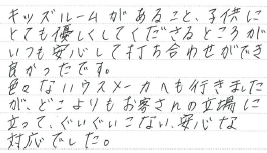 キッズルームがあること、子供に
とても優しくしてくださるところが
いつも安心して打ち合わせができ
良かったです。
色々なハウスメーカーへも行きました
が、どこよりもお客さんの立場に
立って、ぐいぐいこない、安心な
対応でした。